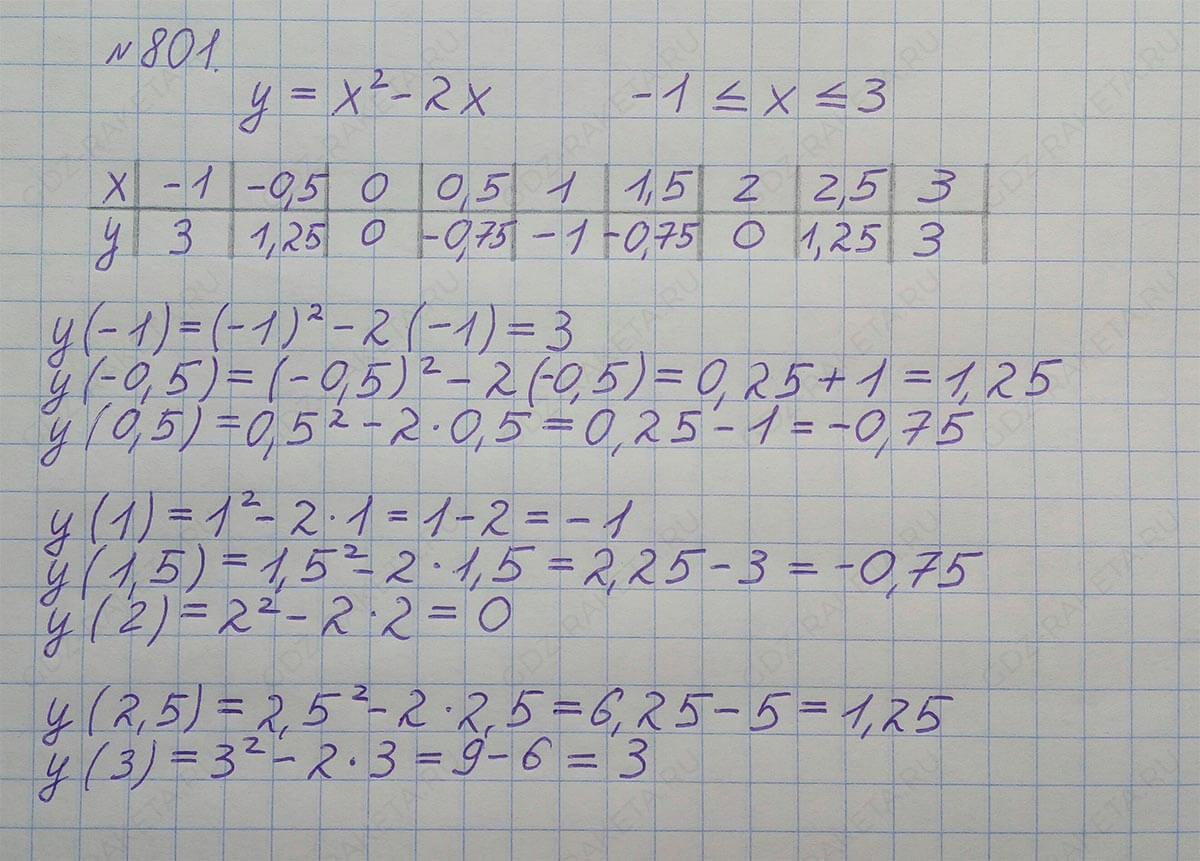 №801.
y = x² - 2x -1 ≤ x ≤ 3
x -1 -0,5 0 0,5 1 1,5 2 2,5 3
y 3 1,25 0 -0,75 -1 -0,75 0 1,25 3
y(-1) = (-1)² - 2(-1) = 3
y(-0,5) = (-0,5)² - 2(-0,5) = 0,25 + 1 = 1,25
y(0,5) = 0,5² - 2·0,5 = 0,25 - 1 = -0,75
y(1) = 1² - 2·1 = 1 - 2 = -1
y(1,5) = 1,5² - 2·1,5 = 2,25 - 3 = -0,75
y(2) = 2² - 2·2 = 0
y(2,5) = 2,5² - 2·2,5 = 6,25 - 5 = 1,25
y(3) = 3² - 2·3 = 9 - 6 = 3
GDZ-RAKETA.RU